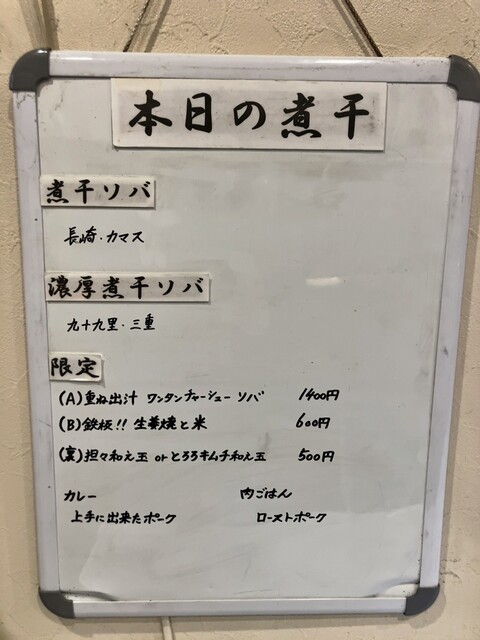 本日の煮干
煮干ソバ
長崎・カマス
濃厚煮干ソバ
九十九里・三重
限定
(A)重ね出汁 ワンタンチャーシュー ソバ 1400円
(B)鉄板!! 生姜焼と米 600円
(裏)担々和え玉 orとろろキムチ和え玉 500円
カレー 肉ごはん
上手に出来たポーク ローストポーク